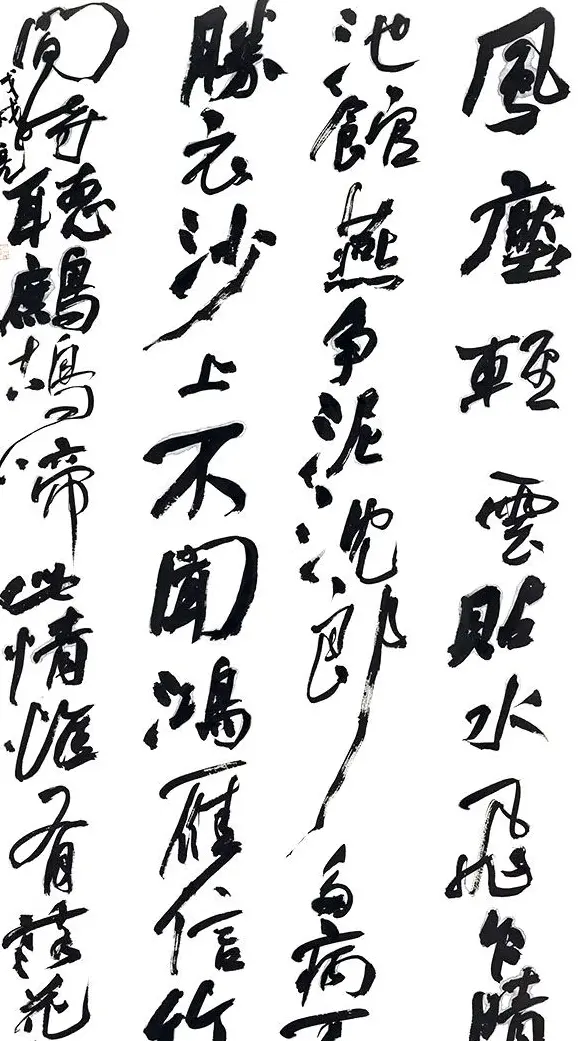 風壓輕雲貼水飛乍晴
池館燕争泥沈郎多病不
勝衣沙上不聞鴻雁信竹
間時聽鷓鴣啼此情惟有落花
戊戌